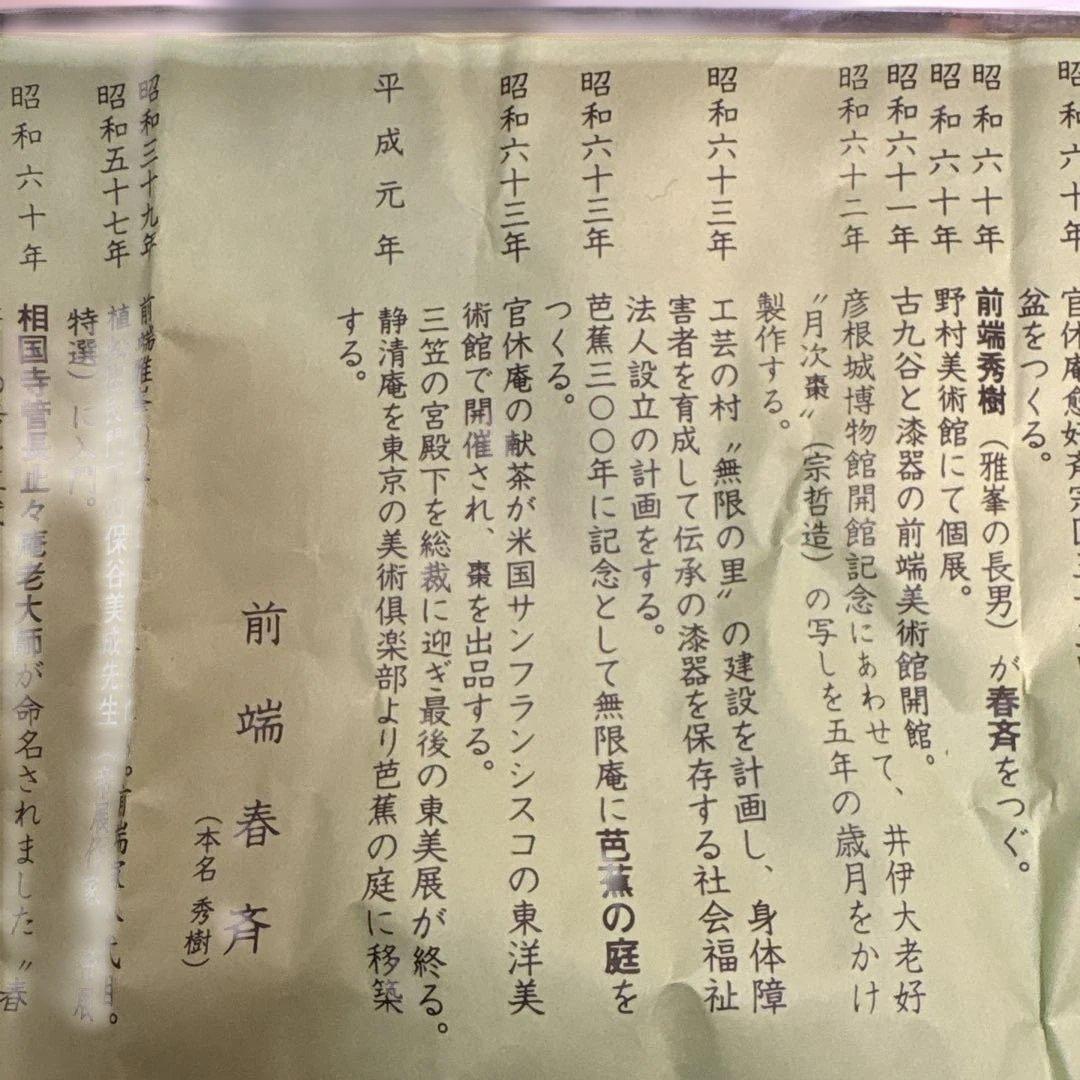 昭和六十年
官休庵愈好斉宗
盆をつくる。
昭和六十年 前端秀樹(雅峯の長男)が春斉をつぐ。
昭和六十年 野村美術館にて個展。
昭和六十一年 古九谷と漆器の前端美術館開館。
昭和六十二年 彦根城博物館開館記念にあわせて、井伊大老好
〝月次棗〟(宗哲造)の写しを五年の歳月をかけ
製作する。
昭和六十三年 工芸の村〝無限の里〟の建設を計画し、身体障
害者を育成して伝承の漆器を保存する社会福祉
法人設立の計画をする。
昭和六十三年 芭蕉三〇〇年に記念として無限庵に芭蕉の庭を
つくる。
昭和六十三年 官休庵の献茶が米国サンフランシスコの東洋美
術館で開催され、棗を出品する。
三笠の宮殿下を総裁に迎ぎ最後の東美展が終る。
平成元年 静清庵を東京の美術倶楽部より芭蕉の庭に移築
する。
前端春斉
(本名 秀樹)
昭和三十九年 前端雅峯の 。前端家八代目。
昭和五十七年 門下 保谷美成先生
特選)に入門。
昭和六十年 相国寺管長止々庵老大師が命名されました〝春